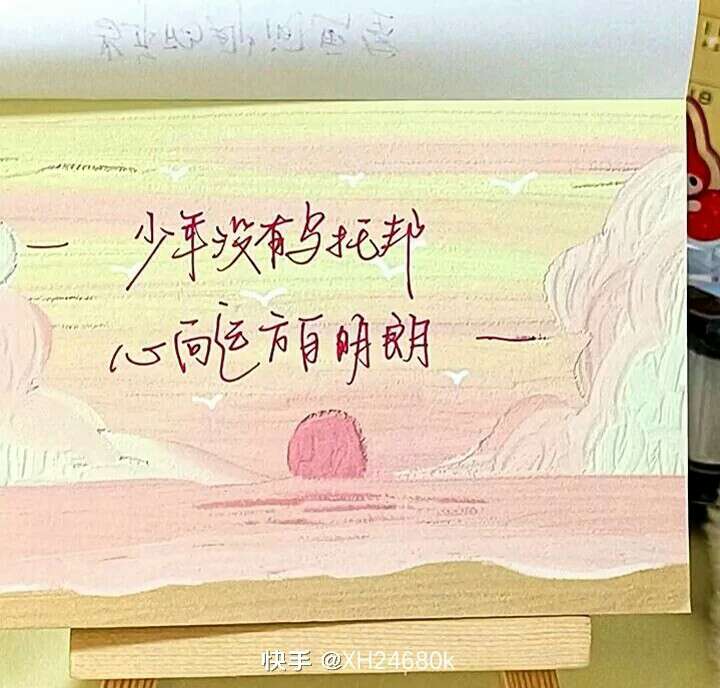 — 少年没有乌托邦
心向远方自明朗 —
快手 @XH24680k